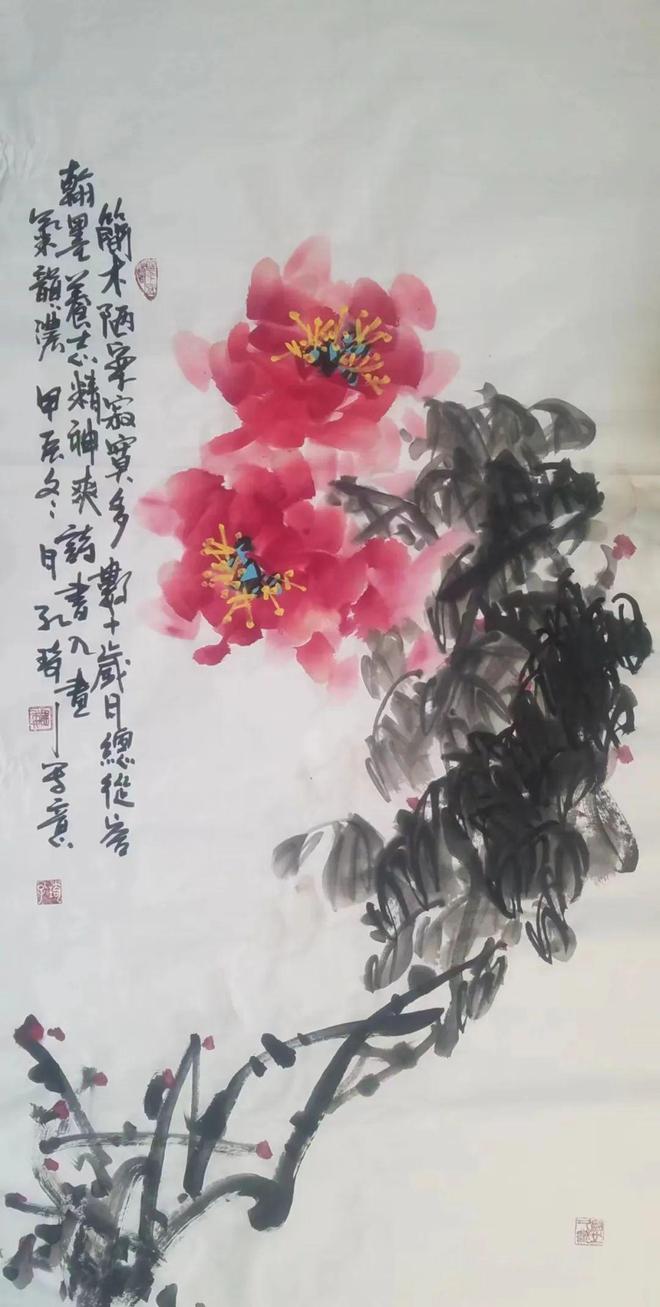 简木陋室寂寞多数十岁月总从容
翰墨養志精神爽詩書入畫
氣韻濃甲辰冬日孔
寫意